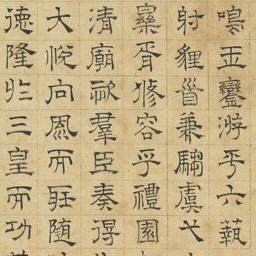 鳴玉鸞游乎六蓺
射貍首兼騶虞弋
樂胥修容乎禮園
清廟恣羣臣奏得
大悅向風而聽隨
徳隆於三皇而功